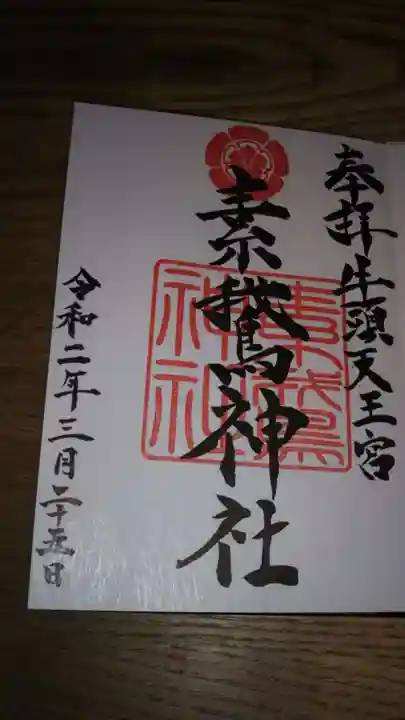 奉拝 牛頭天王宮
素鵞神社
素鵞
神社
令和二年三月二十五日